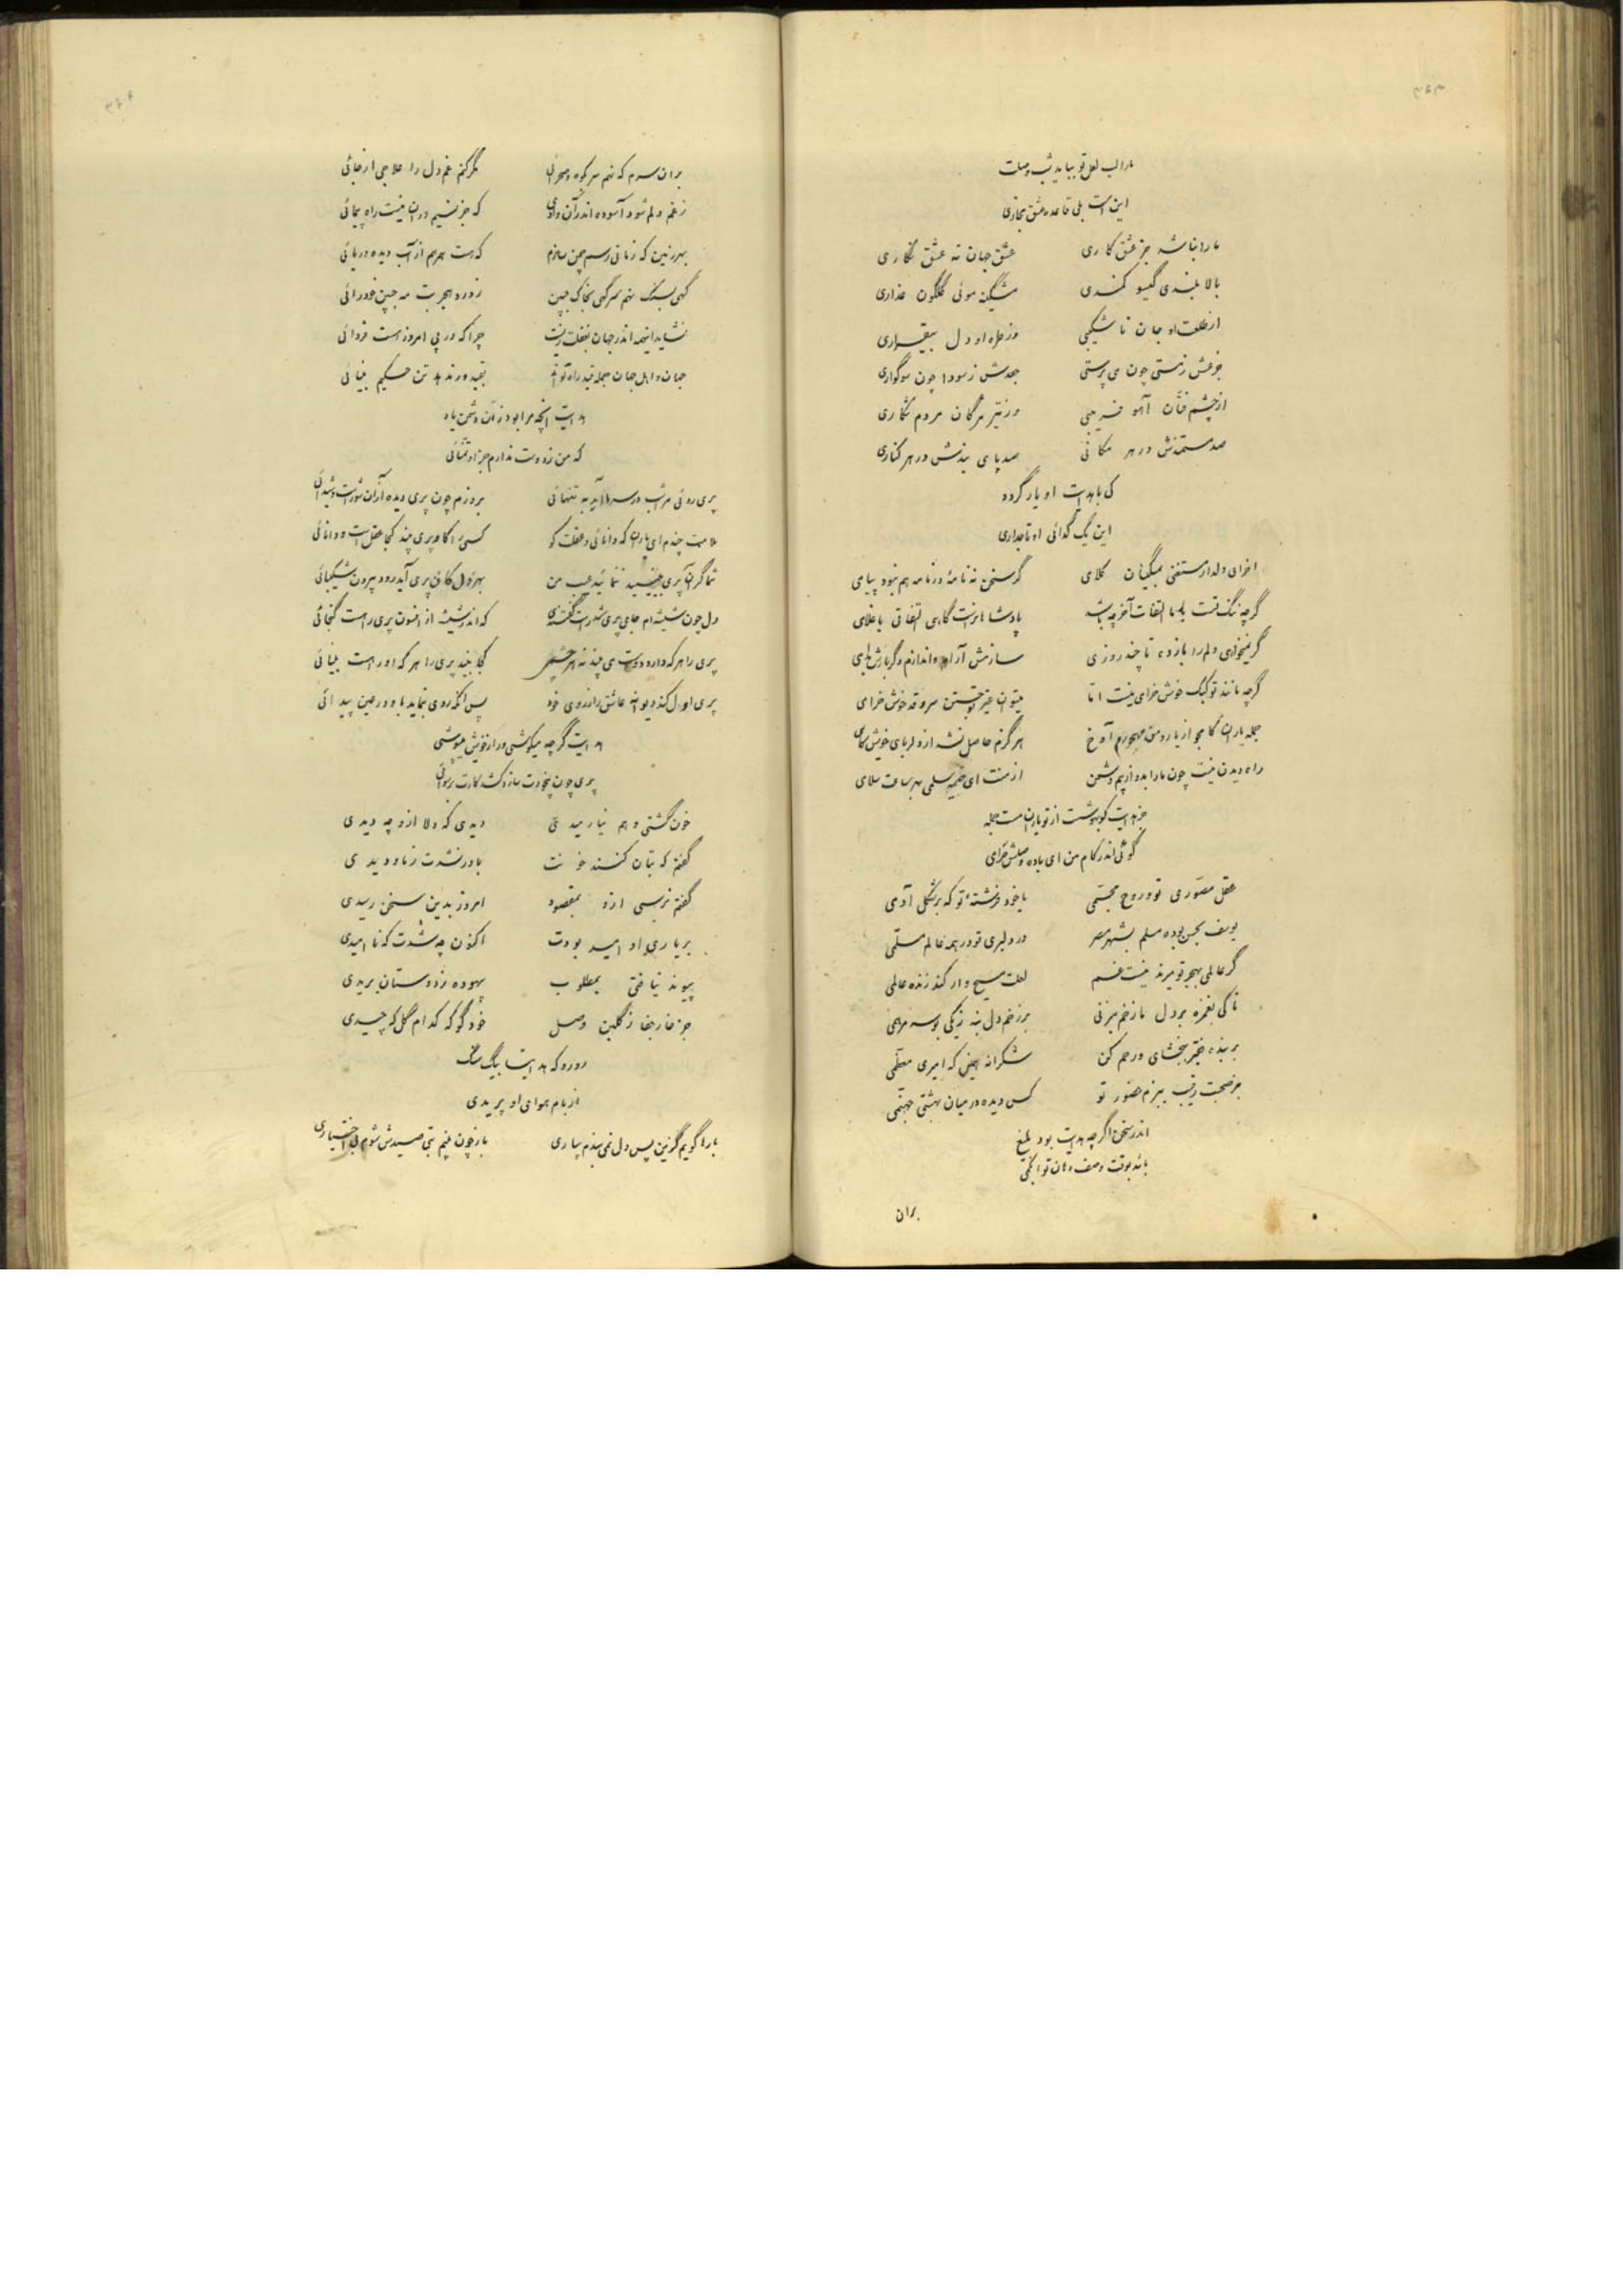 ۳۶۳
ما را لب لعل تو بباید شب وصلت
این است بلی قاعده عشق مجازی
ما را نباشد جز عشق کاری عشق جهان نه عشق نگاری
بالا بلندی گیسو کمندی مشکین موئی گلگون عذاری
از طلعت او جان ناشکیبی وز طره او دل بیقراری
جزعش ز مستی چون می پرستی جعدش ز سودا چون سوگواری
از چشم فتان آهو فریبی وز تیر مژگان مردم شکاری
صد مستمندش در هر مکانی صد پای بندش در هر کناری
کی با هدایت او یار گردد
این یک گدائی او تاجداری
گر سخن نه نامهٔ ور نامه هم نبود پیامی
گرچه ننگ تست با ما التفات آخر چه باشد پادشاهانراست گاهی التفاتی با غلامی
گر نمیخواهی دلم را بازده تا چند روزی سازمش آرام و اندازم دگر بارش بدامی
گرچه مانند تو کبک خوش خرامی نیست اما میتوان غیر تو جستن سرو قد خوش خرامی
جمله یاران کامجو از یار و من مهجورم آوخ هرگزم حاصل نشد از دلربای خویش کامی
راه دیدن نیست چون ما را بدو از بیم دشمن از منت ای خیمه سلمی بهر ساعت سلامی
گوئی اندر کام من ای باده وصلش حرامی
عقل مصوری تو و روح مجسمی یا خود فرشتهٔ تو که بر شکل آدمی
یوسف بحسن بوده مسلم بشهر مصر در دلبری تو در همه عالم مسلمی
گر عالمی بهجر تو میرند نیست غم لعلت مسیح وار کند زنده عالمی
تا کی بغمزه بر دل ما زخم میزنی بر زخم دل بنه ز یکی بوسه مرهمی
بر بنده فقیر ببخشای و رحم کن شکرانه همین که امیری معظمی
جز صحبت رقیب ببزم حضور تو کس دیده در میان بهشتی جهنمی
اندر سخن اگر چه هدایت بود بلیغ
باشد بوقت وصف دهان تو ابکمی
بران
۳۶۴
بران سرم که نهم سر بکوه و صحرائی مگر کنم غم دل را علاجی از جائی
ز غم دلم شود آسوده اندر آن وادی که جز نسیم در آن نیست راه پیمائی
بهر زمین که زمانی رسم چمن سازم که هست همرهم از آب دیده دریائی
گهی بسنگ نهم سر گهی بخاک جبین ز درد هجر بت مه جبین خودرائی
نشاید اینهمه اندر جهان بغفلت زیست چرا که در پی امروز هست فردائی
جهان و اهل جهان جمله قید راه تواند
هدایت آنچه مرا بود زان دشمن باد
که من ز دوست ندارم جز او تمنائی
پری روئی مرا شب در سرا آید به تنهائی بروزم چون پری دیده از آن شور است و شیدائی
ملامت چندم ای یاران که دانائی و عقلت کو کسی را کاو پری بیند کجا عقل است و دانائی
شما گر آن پری بینید ننمائید عیب من بهر دل کان پری آید رود بیرون شکیبائی
دل چون شیشه ام جای پری شد راست گفتندی که اندر شیشه از افسون پری را هست گنجائی
پری را هر که دارد دوست می بیند نه هر چشمی کجا بیند پری را هر که او را هست بینائی
پری اول کند دیوانه عاشق را ز روی خود پس آنکه روی بنماید باو در عین پیدائی
هدایت گرچه میکوشی و راز خویش میپوشی
پری چون با خودت سازد کشد کارت برسوائی
خون گشتی و هم نیارمیدی دیدی که دلا ازو چه دیدی
گفتم که بتان کنند خونت باور نشدت ز ما و دیدی
گفتم نرسی ازو بمقصود امروز بدین سخن رسیدی
بر یاری او امید بودت اکنون چه شدت که ناامیدی
پیوند نیافتی بمطلوب بیهوده ز دوستان بریدی
جز خار جفا ز گلبن وصل خود گو که کدام گل که چیدی
رو رو که هدایتا بیک سنگ
از بام هوای او پریدی
بارها گویم کزین پس دل نمی بندم بیاری باز چون بینم بتی صیدش شوم بی اختیاری